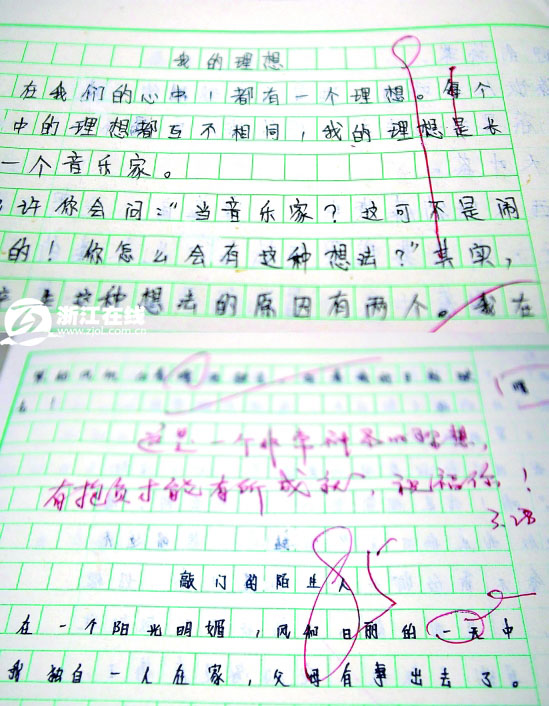 我的理想
在我们的心中，都有一个理想。每个
中的理想都互不相同，我的理想是长
一个音乐家。
许你会问：“当音乐家？这可不是闹
的！你怎么会有这种想法？”其实，
这种想法的原因有两个。我在
浙江在线
www.zjol.com.cn
这是一个非常的理想，
有抱负才能有所成就，祝福你！
3.28
敲门的陌生人
在一个阳光明媚，风和日丽的一天中
我独自一人在家，父母有事出去了。